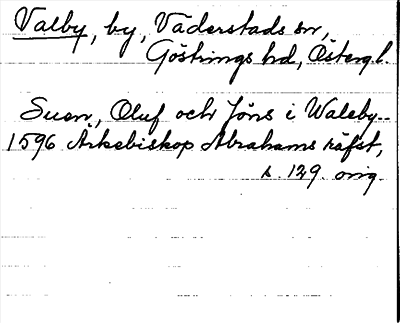 Valby, by, Väderstads sn,
Göstrings hd, Östergl.
Suen, Oluf och Jöns i Waleby
1596 Ärkebiskop Abrahams räfst,
s. 129. orig.